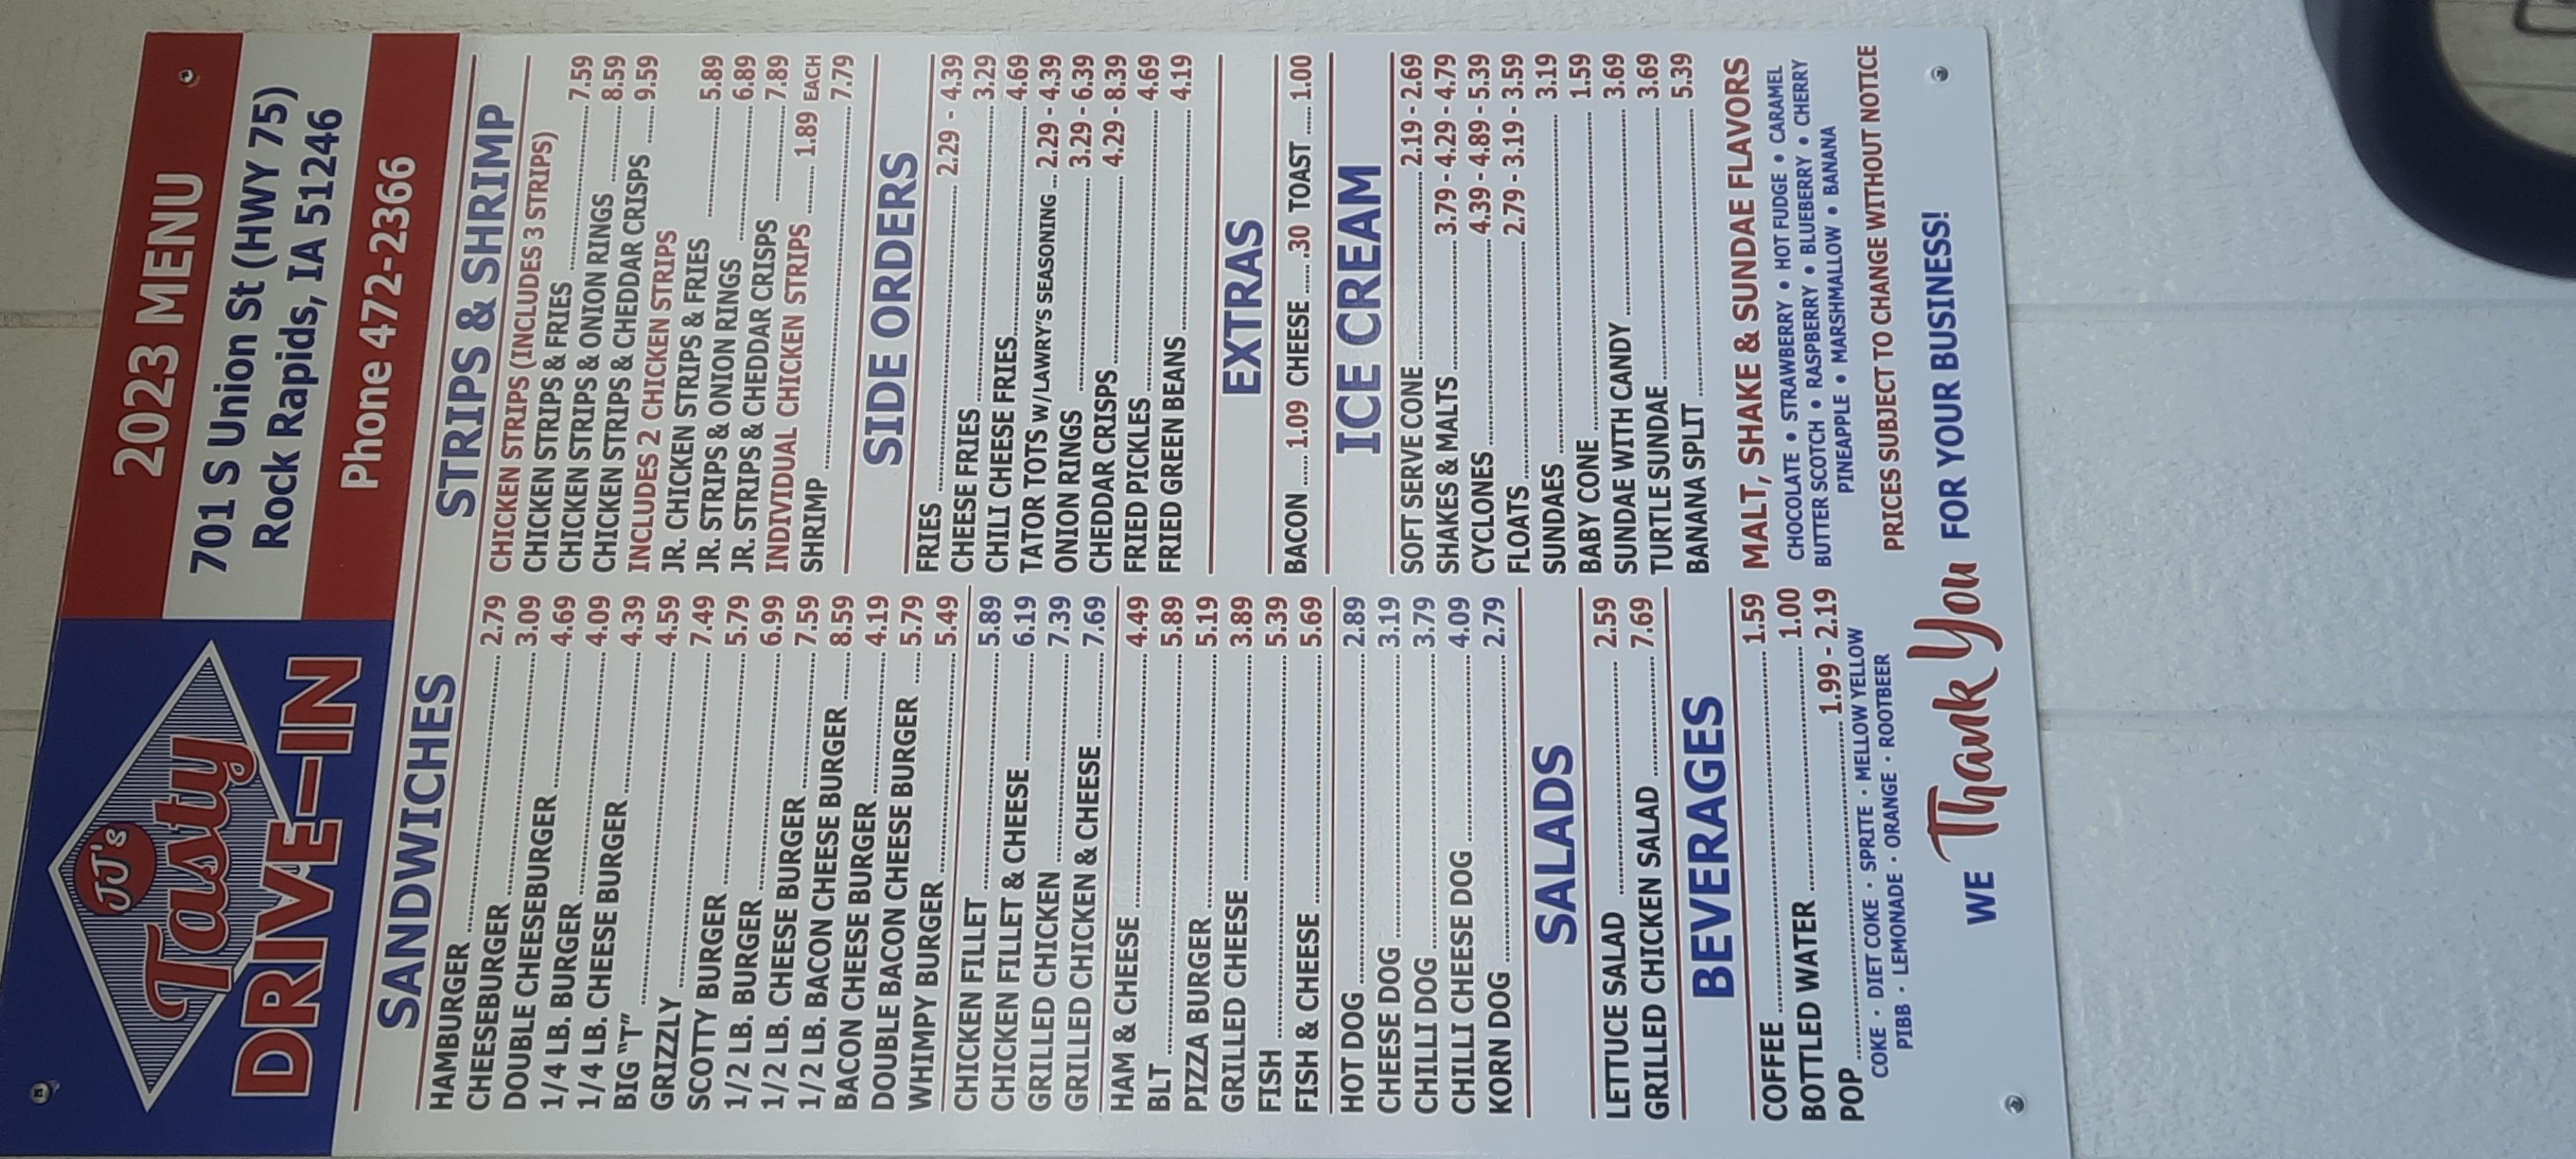 JJ's
Tasty
DRIVE-IN
2023 MENU
701 S Union St (HWY 75)
Rock Rapids, IA 51246
Phone 472-2366
SANDWICHES
HAMBURGER ........ 2.79
CHEESEBURGER ........ 3.09
DOUBLE CHEESEBURGER ........ 4.69
1/4 LB. BURGER ........ 4.09
1/4 LB. CHEESE BURGER ........ 4.39
BIG "T" ........ 4.59
GRIZZLY ........ 7.49
SCOTTY BURGER ........ 5.79
1/2 LB. BURGER ........ 6.99
1/2 LB. CHEESE BURGER ........ 7.59
1/2 LB. BACON CHEESE BURGER ........ 8.59
BACON CHEESE BURGER ........ 4.19
DOUBLE BACON CHEESE BURGER ........ 5.79
WHIMPY BURGER ........ 5.49
CHICKEN FILLET ........ 5.89
CHICKEN FILLET & CHEESE ........ 6.19
GRILLED CHICKEN ........ 7.39
GRILLED CHICKEN & CHEESE ........ 7.69
HAM & CHEESE ........ 4.49
BLT ........ 5.89
PIZZA BURGER ........ 5.19
GRILLED CHEESE ........ 3.89
FISH ........ 5.39
FISH & CHEESE ........ 5.69
HOT DOG ........ 2.89
CHEESE DOG ........ 3.19
CHILLI DOG ........ 3.79
CHILLI CHEESE DOG ........ 4.09
KORN DOG ........ 2.79
SALADS
LETTUCE SALAD ........ 2.59
GRILLED CHICKEN SALAD ........ 7.69
BEVERAGES
COFFEE ........ 1.59
BOTTLED WATER ........ 1.00
POP ........ 1.99 - 2.19
COKE · DIET COKE · SPRITE · MELLOW YELLOW
PIBB · LEMONADE · ORANGE · ROOTBEER
STRIPS & SHRIMP
CHICKEN STRIPS (INCLUDES 3 STRIPS)
CHICKEN STRIPS & FRIES ........ 7.59
CHICKEN STRIPS & ONION RINGS ........ 8.59
CHICKEN STRIPS & CHEDDAR CRISPS ........ 9.59
INCLUDES 2 CHICKEN STRIPS
JR. CHICKEN STRIPS & FRIES ........ 5.89
JR. STRIPS & ONION RINGS ........ 6.89
JR. STRIPS & CHEDDAR CRISPS ........ 7.89
INDIVIDUAL CHICKEN STRIPS ........ 1.89 EACH
SHRIMP ........ 7.79
SIDE ORDERS
FRIES ........ 2.29 - 4.39
CHEESE FRIES ........ 3.29
CHILI CHEESE FRIES ........ 4.69
TATOR TOTS W/LAWRY'S SEASONING ... 2.29 - 4.39
ONION RINGS ........ 3.29 - 6.39
CHEDDAR CRISPS ........ 4.29 - 8.39
FRIED PICKLES ........ 4.69
FRIED GREEN BEANS ........ 4.19
EXTRAS
BACON ...... 1.09 CHEESE ......30 TOAST ...... 1.00
ICE CREAM
SOFT SERVE CONE ........ 2.19 - 2.69
SHAKES & MALTS ........ 3.79 - 4.29 - 4.79
CYCLONES ........ 4.39 - 4.89 - 5.39
FLOATS ........ 2.79 - 3.19 - 3.59
SUNDAES ........ 3.19
BABY CONE ........ 1.59
SUNDAE WITH CANDY ........ 3.69
TURTLE SUNDAE ........ 3.69
BANANA SPLIT ........ 5.39
MALT, SHAKE & SUNDAE FLAVORS
CHOCOLATE • STRAWBERRY • HOT FUDGE • CARAMEL
BUTTER SCOTCH • RASPBERRY • BLUEBERRY • CHERRY
PINEAPPLE • MARSHMALLOW • BANANA
PRICES SUBJECT TO CHANGE WITHOUT NOTICE
WE Thank You FOR YOUR BUSINESS!